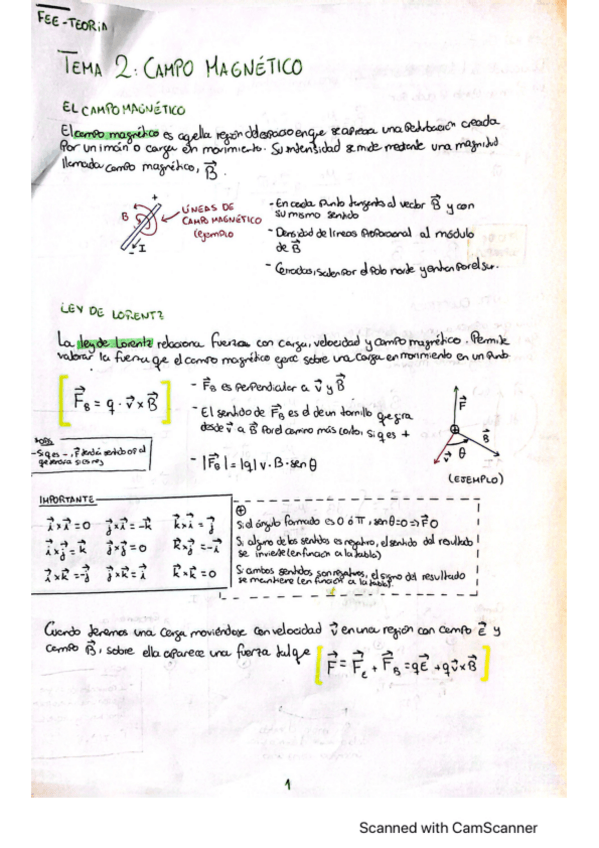 FEE-TEORIA
TEMA 2: CAMPO MAGNÉTICO
EL CAMPO MAGNÉTICO
El campo magnético es aquella región del espacio en que se aprecia una perturbación creada
por un imán o carga en movimiento. Su intensidad se mide mediante una magnitud
llamada campo magnético, B⃗.
+
B
I
-
LÍNEAS DE
CAMPO MAGNÉTICO
(ejemplo
- En cada punto tangente al vector B⃗ y con
su mismo sentido
- Densidad de líneas proporcional al módulo
de B⃗
- Cerradas, salen por el polo norte y entran por el sur.
LEY DE LORENTZ
La ley de Lorentz relaciona fuerza con carga, velocidad y campo magnético. Permite
valorar la fuerza que el campo magnético ejerce sobre una carga en movimiento en un punto
[F⃗B = q · v⃗ x B⃗]
- F⃗B es perpendicular a v⃗ y B⃗
- El sentido de F⃗B es el de un tornillo que gira
desde v⃗ a B⃗ por el camino más corto, si q es +
- |F⃗B| = |q| v · B · sen θ
- Si q es -, F⃗ tendrá sentido op. al
F⃗
B⃗
v⃗
θ
(EJEMPLO)
IMPORTANTE
i⃗ x i⃗ = 0 j⃗ x i⃗ = -k⃗ k⃗ x i⃗ = j⃗
i⃗ x j⃗ = k⃗ j⃗ x j⃗ = 0 k⃗ x j⃗ = -i⃗
i⃗ x k⃗ = -j⃗ j⃗ x k⃗ = i⃗ k⃗ x k⃗ = 0
⊕
Si el ángulo formado es 0 ó π, sen θ = 0 => F⃗ 0
Si alguno de los sentidos es negativo, el sentido del resultado
se invierte (en función a la tabla)
Si ambos sentidos son negativos, el signo del resultado
se mantiene (en función a la tabla)
Cuando tenemos una carga moviéndose con velocidad v⃗ en una región con campo E⃗ y
campo B⃗, sobre ella aparece una fuerza tal que [F⃗ = F⃗e + F⃗B = qE⃗ + qv⃗ x B⃗]
1
Scanned with CamScanner